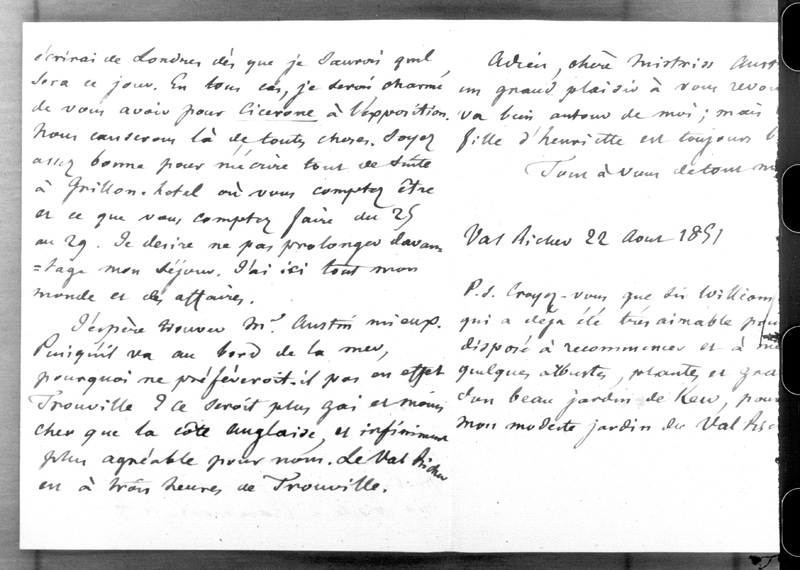 écrirai de Londres dès que je saurai quel
sera ce jour. En tous cas, je serai charmé
de vous avoir pour Cicerone à l'exposition.
Nous causerons là de toutes choses. Soyez
assez bonne pour m'écrire tout de suite
à Grillon-hotel où vous comptez être
et ce que vous comptez faire du 25
au 29. Je desire ne pas prolonger davan=
=tage mon séjour. J'ai ici tout mon
monde et des affaires.
J'espère trouver Mr. Austin mieux.
Puisqu'il va au bord de la mer,
pourquoi ne préféreroit-il pas en effet
Trouville ? Ce seroit plus gai et moins
cher que la côte anglaise, et infiniment
plus agréable pour nous. Le Val Richer
est à trois heures de Trouville.
Adieu, chère Mistriss Aust
un grand plaisir à vous revoi
va bien autour de moi ; mais
fille d'henriette est toujours
Tout à vous de tout
Val Richer 22 Aout 1851
P.S. Croyez-vous que Sir William
qui a déjà été très aimable pour
disposé à recommencer et à
quelques arbustes, plantes et gra
d'un beau jardin de Kew, pour
mon modeste jardin du Val Rich